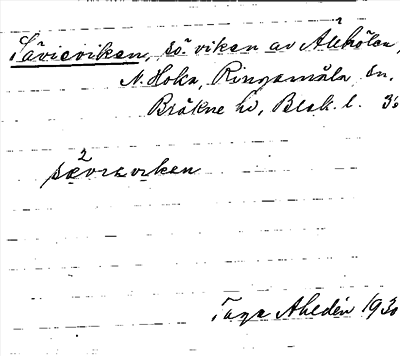 Sävieviken, sö viken av Allhölen,
N. Hoka, Ringamåla sn,
Bräkne hd, Blek. l. 30
sævıəvikən
Tage Ahldén 1930